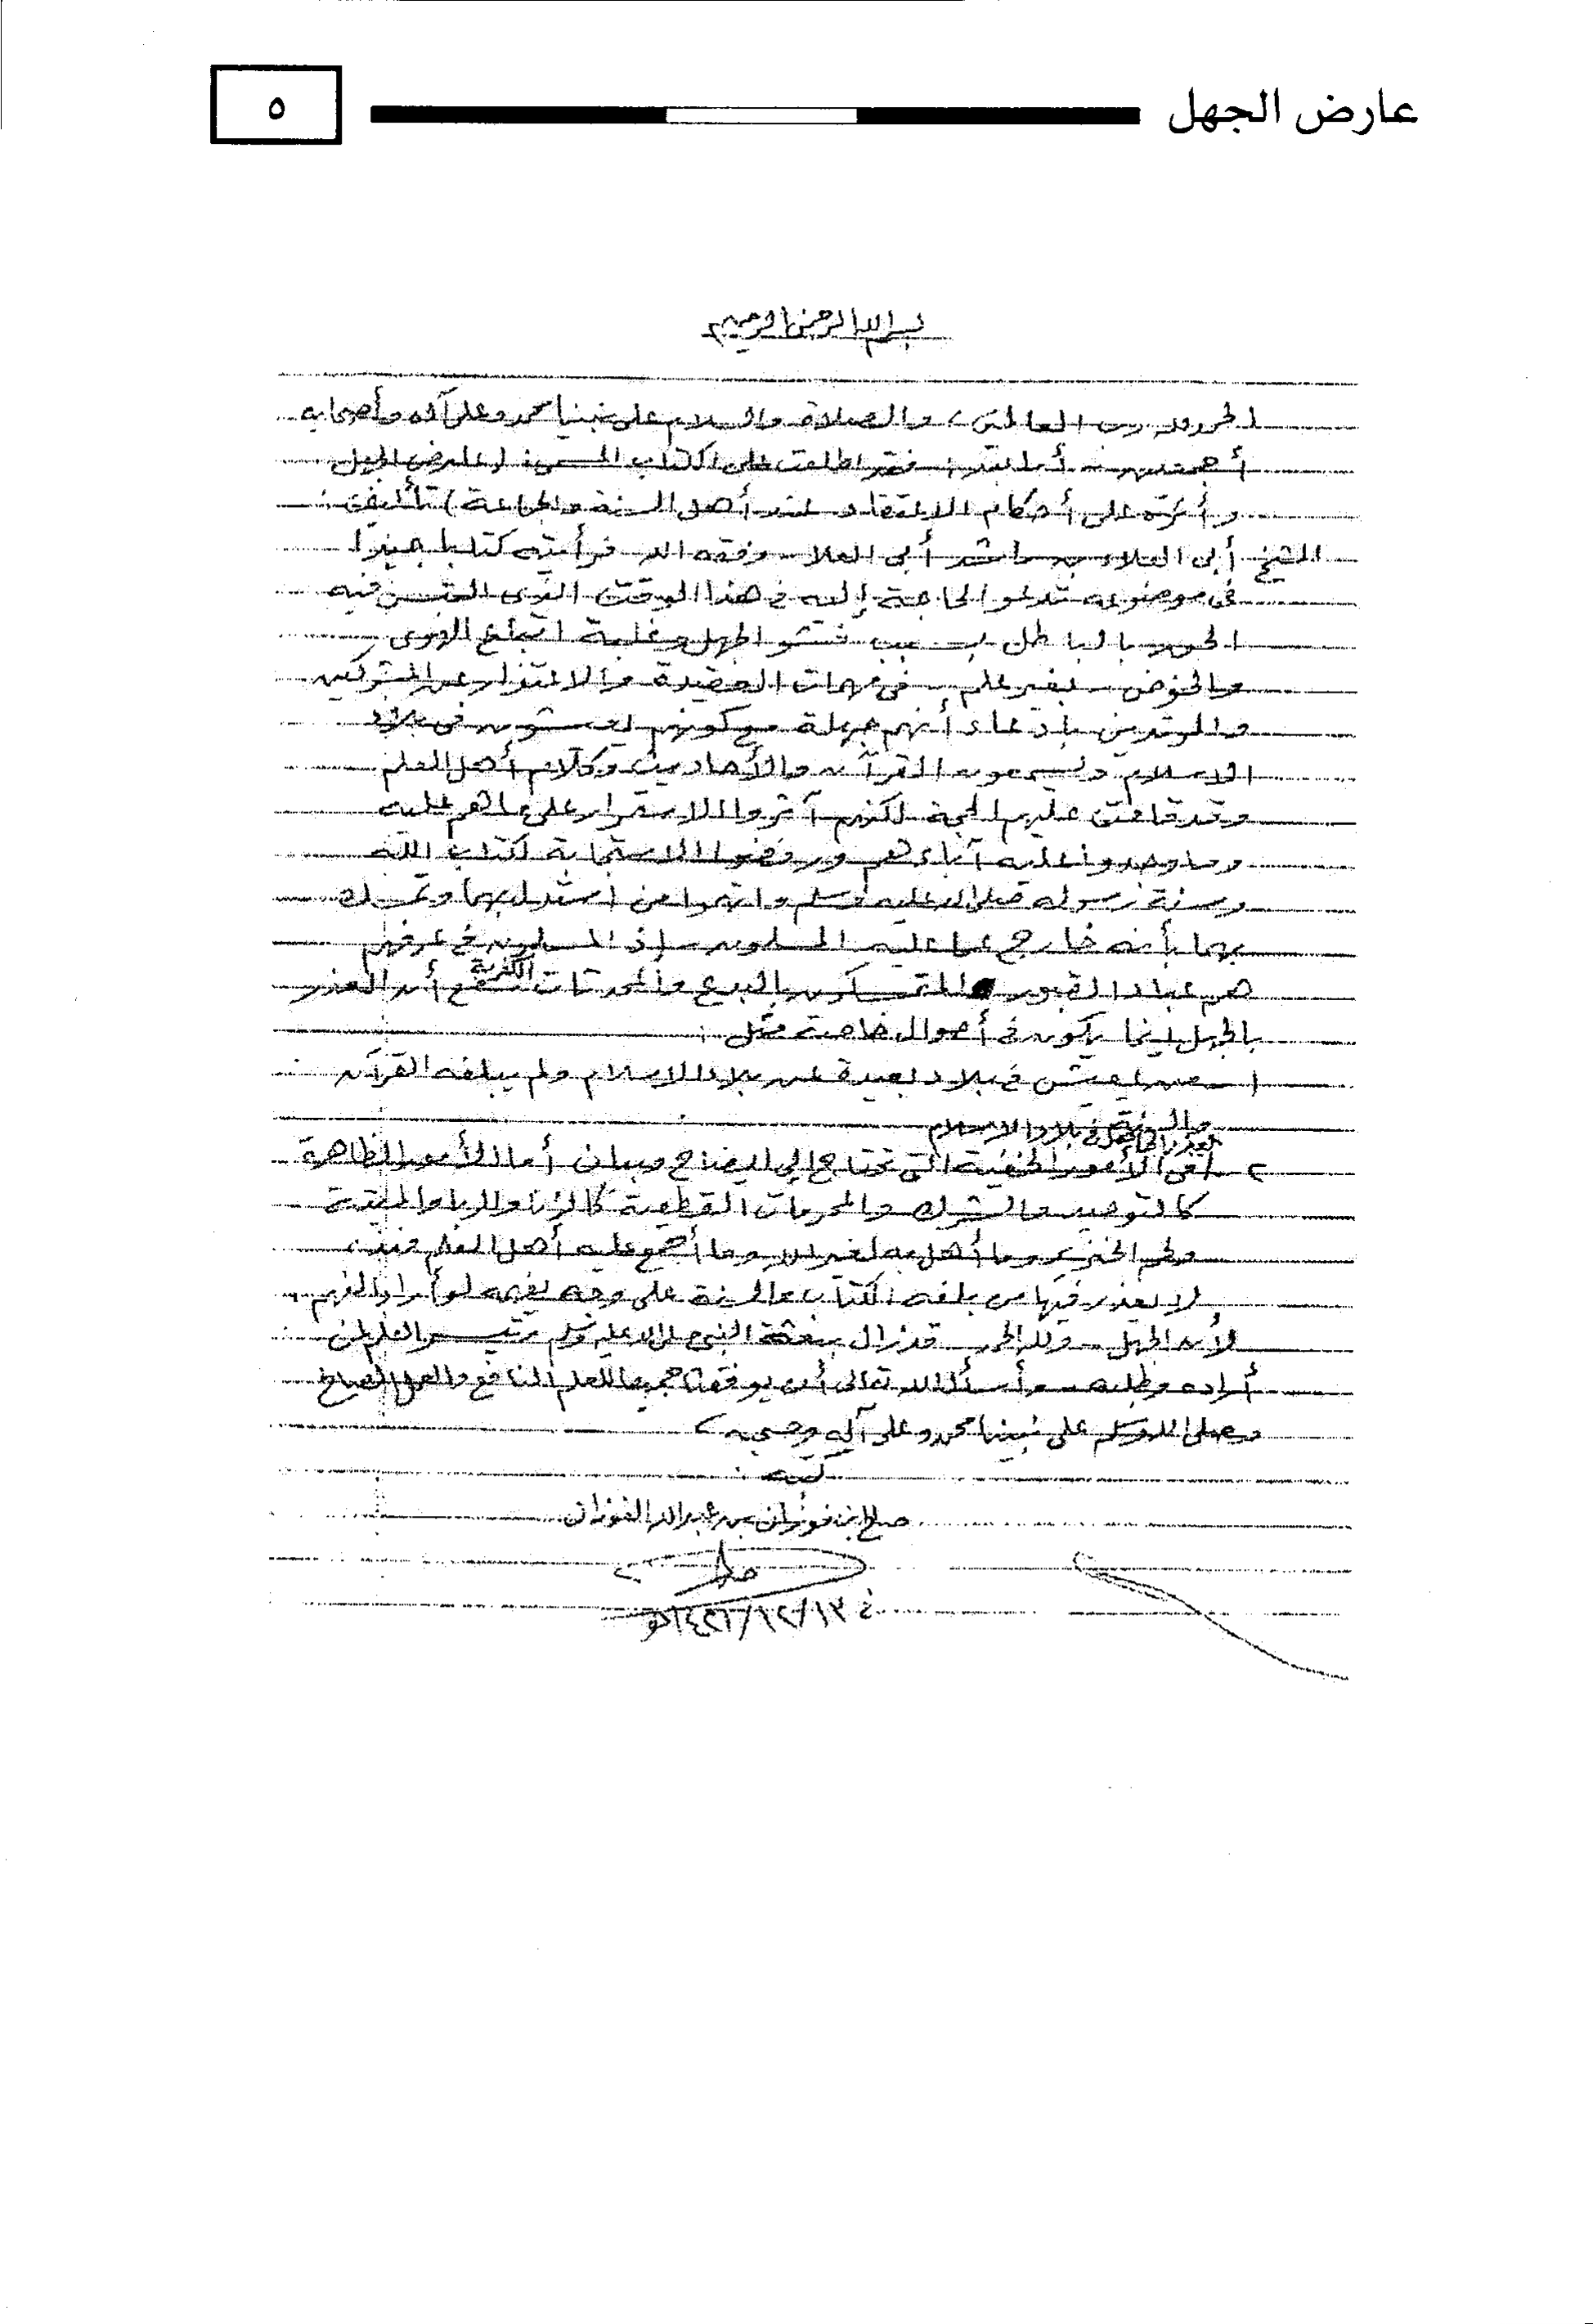 عارض الجهل
٥
بسم الله الرحمن الرحيم
الحمد لله رب العالمين، والصلاة والسلام على نبينا محمد وعلى آله وأصحابه
أجمعين - أما بعد: فقد اطلعت على الكتاب المسمى: (عارض الجهل
وأثره على أحكام الاعتقاد عند أهل السنة والجماعة) تأليف:
الشيخ أبي العلاء بن راشد أبي العلاء وفقه الله فرأيته كتابا جيدا
في موضوعه تدعو الحاجة إليه في هذا الوقت الذي التبس فيه
الحق بالباطل بسبب تفشو الجهل وغلبة اتباع الهوى
والخوض بغير علم في مهمات العقيدة والاعتذار عن المشركين
والمرتدين بادعاء أنهم جهلة مع كونهم يعيشون في بلاد
الإسلام ويسمعون القرآن والأحاديث وكلام أهل العلم
وقد قامت عليهم الحجة لكنهم آثروا الاستمرار على ما هم عليه
وما وجدوا عليه آباءهم ورفضوا الاستجابة لكتاب الله
وسنة رسوله صلى الله عليه وسلم واتهموا من استدل بهما وتمسك
بهما بأنه خارج عما عليه المسلمون - إذ المسلمون في عرفهم
هم عباد القبور والمتمسكون بالبدع والمحدثات الكفرية مع أن العذر
بالجهل إنما يكون في أحوال خاصة مثل:
١ - من يعيش في بلاد بعيدة عن بلاد الإسلام ولم يبلغه القرآن
والسنة
يعذر الجاهل في بلاد الإسلام
٢ - في الأمور الخفية التي تحتاج إلى إيضاح وبيان أما الأمور الظاهرة
كالتوحيد والشرك والمحرمات القطعية كالزنا والربا والميتة
ولحم الخنزير وما أهل به لغير الله وما أجمع عليه أهل العلم
لا يعذر فيها من بلغه الكتاب والسنة على وجه يفهمه لو أراد الفهم
لأن الجهل - ولله الحمد قد زال ببعثة النبي صلى الله عليه وسلم وتيسر العلم لمن
أراده وطلبه - وأسأل الله تعالى أن يوفقنا جميعا للعلم النافع والعمل الصالح
وصلى الله وسلم على نبينا محمد وعلى آله وصحبه
كتبه:
صالح بن فوزان بن عبدالله الفوزان
١٤٢٦/١٢/١٧هـ